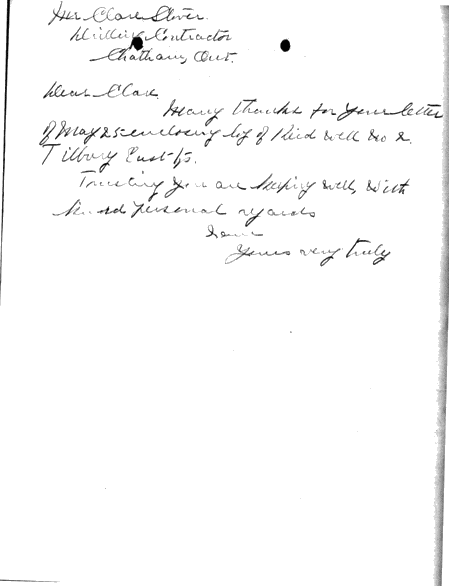 Mr Clare Stover.
Drilling Contractor
Chatham, Ont.
Dear Clare
Many thanks for your letter
of May 25 enclosing log of Reid well No 2.
Tilbury East Tp.
Trusting you are keeping well, with
kind personal regards
I am
Yours very truly